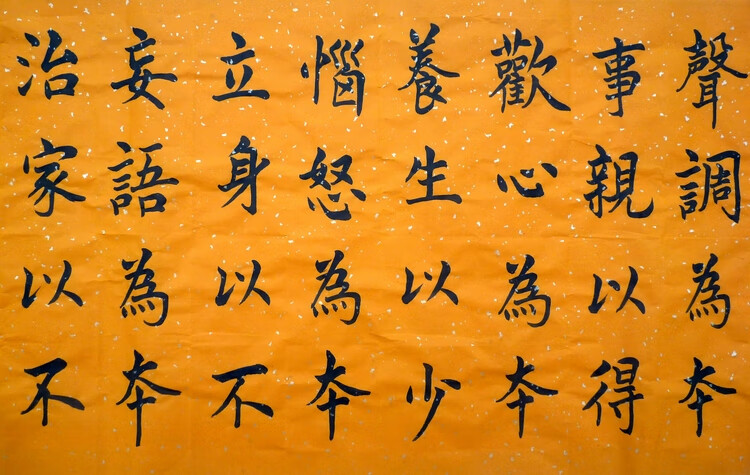 聲調為本
事親以得
歡心為本
養生以少
惱怒為本
立身以不
妄語為本
治家以不